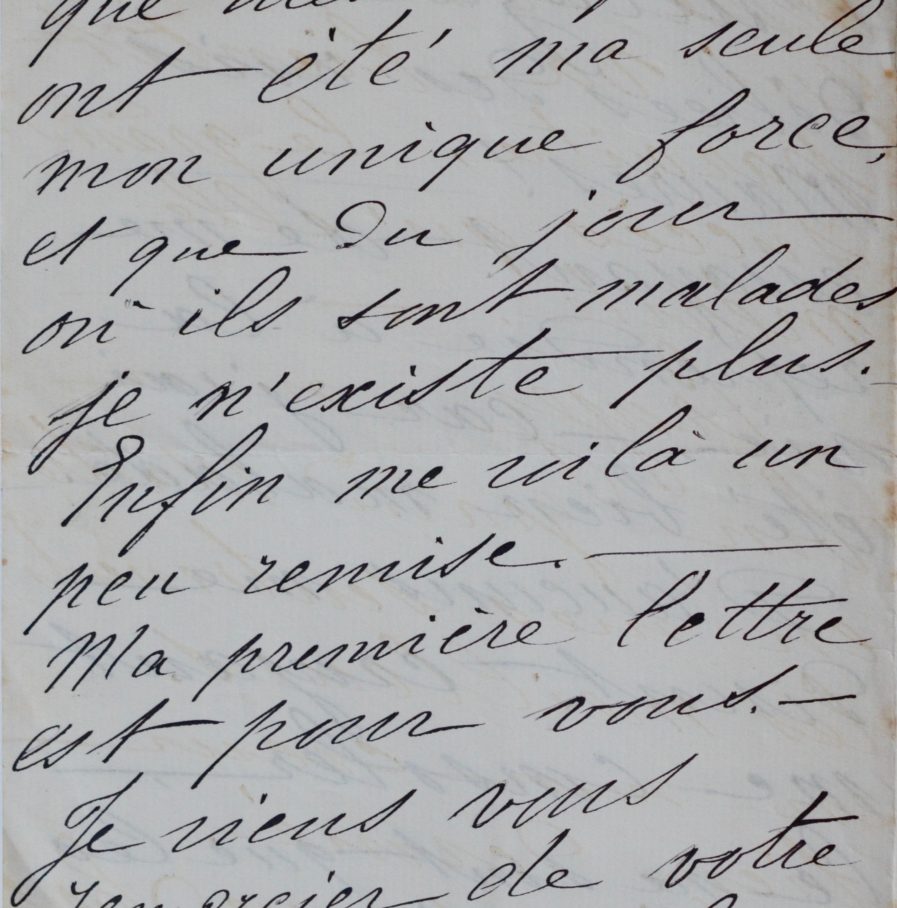 que
ont été ma seule
mon unique force,
et que du jour
où ils sont malades
je n'existe plus. -
Enfin me voilà un
peu remise. —
Ma première lettre
est pour vous. -
Je viens vous
remercier de votre